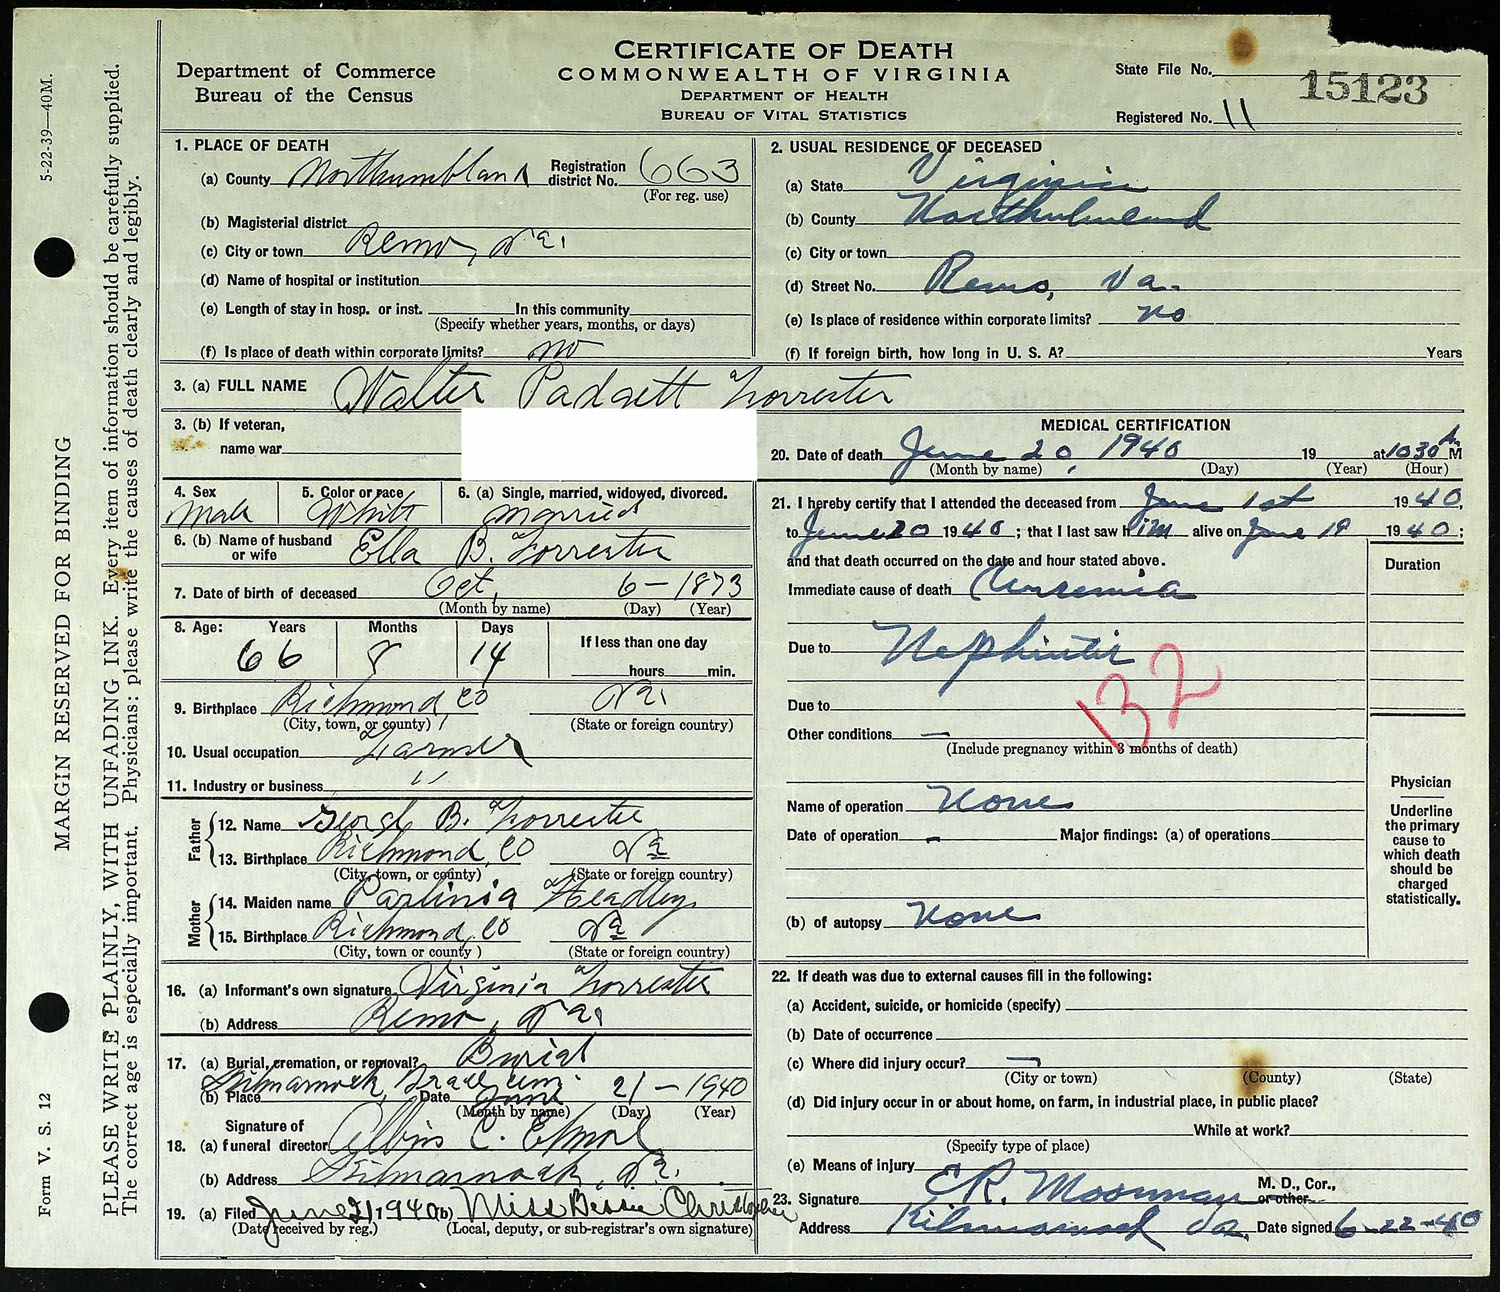 5-22-39—40M.
MARGIN RESERVED FOR BINDING
Form V. S. 12
PLEASE WRITE PLAINLY, WITH UNFADING INK. Every item of information should be carefully supplied.
The correct age is especially important. Physicians: please write the causes of death clearly and legibly.
Department of Commerce
Bureau of the Census
CERTIFICATE OF DEATH
COMMONWEALTH OF VIRGINIA
DEPARTMENT OF HEALTH
BUREAU OF VITAL STATISTICS
State File No. 15123
Registered No. 11
1. PLACE OF DEATH
(a) County Northumbland Registration district No. 663
(For reg. use)
(b) Magisterial district
(c) City or town Remo, Va.
(d) Name of hospital or institution
(e) Length of stay in hosp. or inst. In this community
(Specify whether years, months, or days)
(f) Is place of death within corporate limits? no
2. USUAL RESIDENCE OF DECEASED
(a) State Virginia
(b) County
(c) City or town
(d) Street No. Remo, Va.
(e) Is place of residence within corporate limits? no
(f) If foreign birth, how long in U. S. A? Years
3. (a) FULL NAME Walter Padgett Forrester
3. (b) If veteran,
name war
4. Sex Male
5. Color or race White
6. (a) Single, married, widowed, divorced. Married
6. (b) Name of husband or wife Ella B. Forrester
7. Date of birth of deceased Oct. 6 - 1873
(Month by name) (Day) (Year)
8. Age: Years Months Days If less than one day
66 8 14 hours min.
9. Birthplace Richmond, Co Va.
(City, town, or county) (State or foreign country)
10. Usual occupation Farmer
11. Industry or business "
Father
12. Name B. Forrester
13. Birthplace Richmond, Co Va
(City, town, or county) (State or foreign country)
Mother
14. Maiden name Headley
15. Birthplace Richmond, Co Va
(City, town or county) (State or foreign country)
16. (a) Informant's own signature Virginia Forrester
(b) Address Remo, Va.
17. (a) Burial, cremation, or removal? Burial
(b) Place Kilmarnock, Cem. Date June 21 - 1940
(Month by name) (Day) (Year)
18. (a) Signature of funeral director C.
(b) Address Kilmarnock, Va.
19. (a) Filed June 21, 1940 (b) Miss Bessie Christopher
(Date received by reg.) (Local, deputy, or sub-registrar's own signature)
MEDICAL CERTIFICATION
20. Date of death June 20, 1940 19 at 10 30 A. M
(Month by name) (Day) (Year) (Hour)
21. I hereby certify that I attended the deceased from June 1st 1940,
to June 20 1940; that I last saw him alive on June 19 1940;
and that death occurred on the date and hour stated above.
Duration
Immediate cause of death Uremia
Due to
132
Due to
Other conditions —
(Include pregnancy within 3 months of death)
Name of operation None
Date of operation - Major findings: (a) of operations
(b) of autopsy None
Physician
Underline the primary cause to which death should be charged statistically.
22. If death was due to external causes fill in the following:
(a) Accident, suicide, or homicide (specify)
(b) Date of occurrence
(c) Where did injury occur?
(City or town) (County) (State)
(d) Did injury occur in or about home, on farm, in industrial place, in public place?
While at work?
(Specify type of place)
(e) Means of injury
23. Signature E R. Moorman M. D., Cor., or other
Address Kilmarnock Va. Date signed 6-22-40